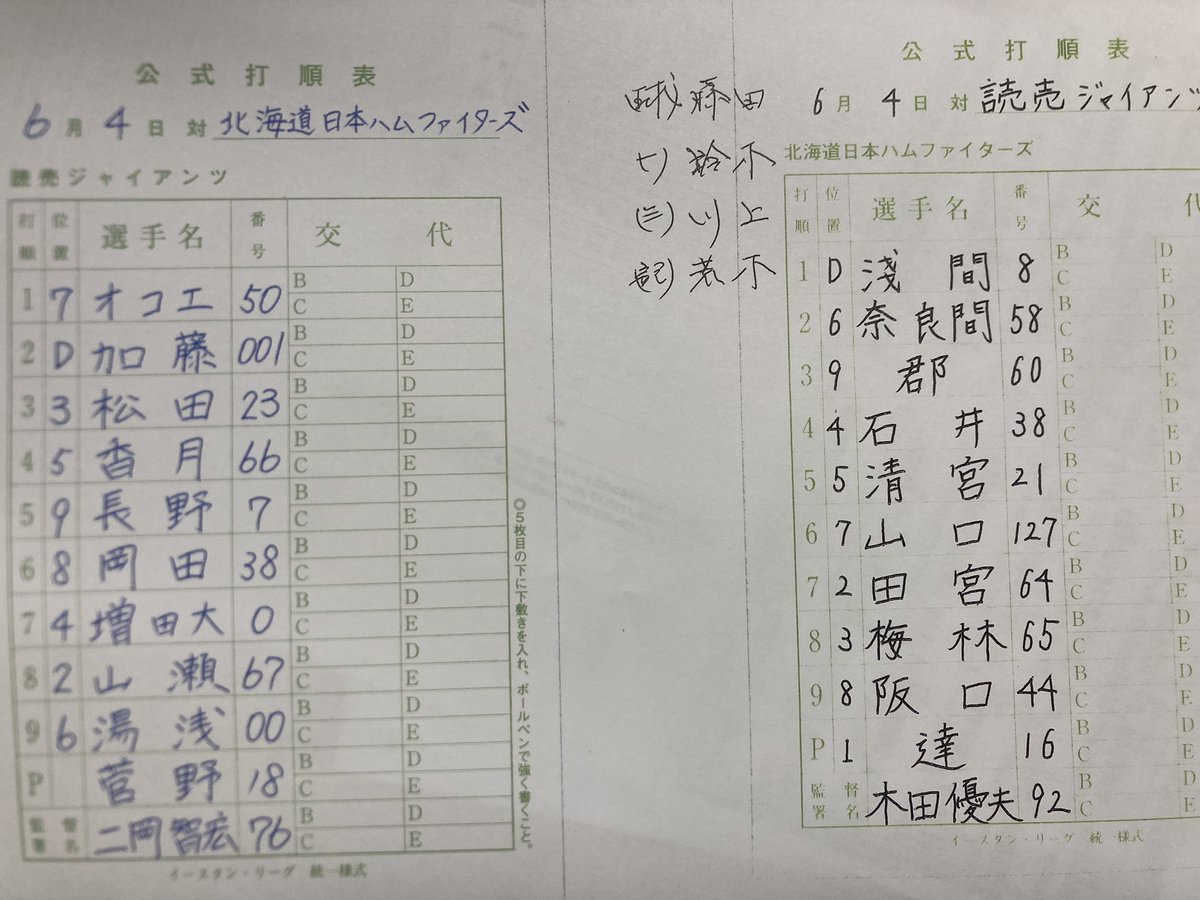 公式打順表
6月4日対 北海道日本ハムファイターズ
読売ジャイアンツ
打順 位置 選手名 番号 交代
1 7 オコエ 50 B C D E
2 D 加藤 001 B C D E
3 3 松田 23 B C D E
4 5 香月 66 B C D E
5 9 長野 7 B C D E
6 8 岡田 38 B C D E
7 4 増田大 0 B C D E
8 2 山瀬 67 B C D E
9 6 湯浅 00 B C D E
P 菅野 18 B C D E
監督署名 二岡智宏 76 B C D E
イースタン・リーグ 統一様式
◎5枚目の下に下敷きを入れ、ボールペンで強く書くこと。
球 藤田
川上
公式打順表
6月4日対 読売ジャイアンツ
北海道日本ハムファイターズ
打順 位置 選手名 番号 交代
1 D 浅間 8 B C D E
2 6 奈良間 58 B C D E
3 9 郡 60 B C D E
4 4 石井 38 B C D E
5 5 清宮 21 B C D E
6 7 山口 127 B C D E
7 2 田宮 64 B C D E
8 3 梅林 65 B C D E
9 8 阪口 44 B C D E
P 1 達 16 B C D E
監督署名 木田優夫 92 B C D E
イースタン・リーグ 統一様式